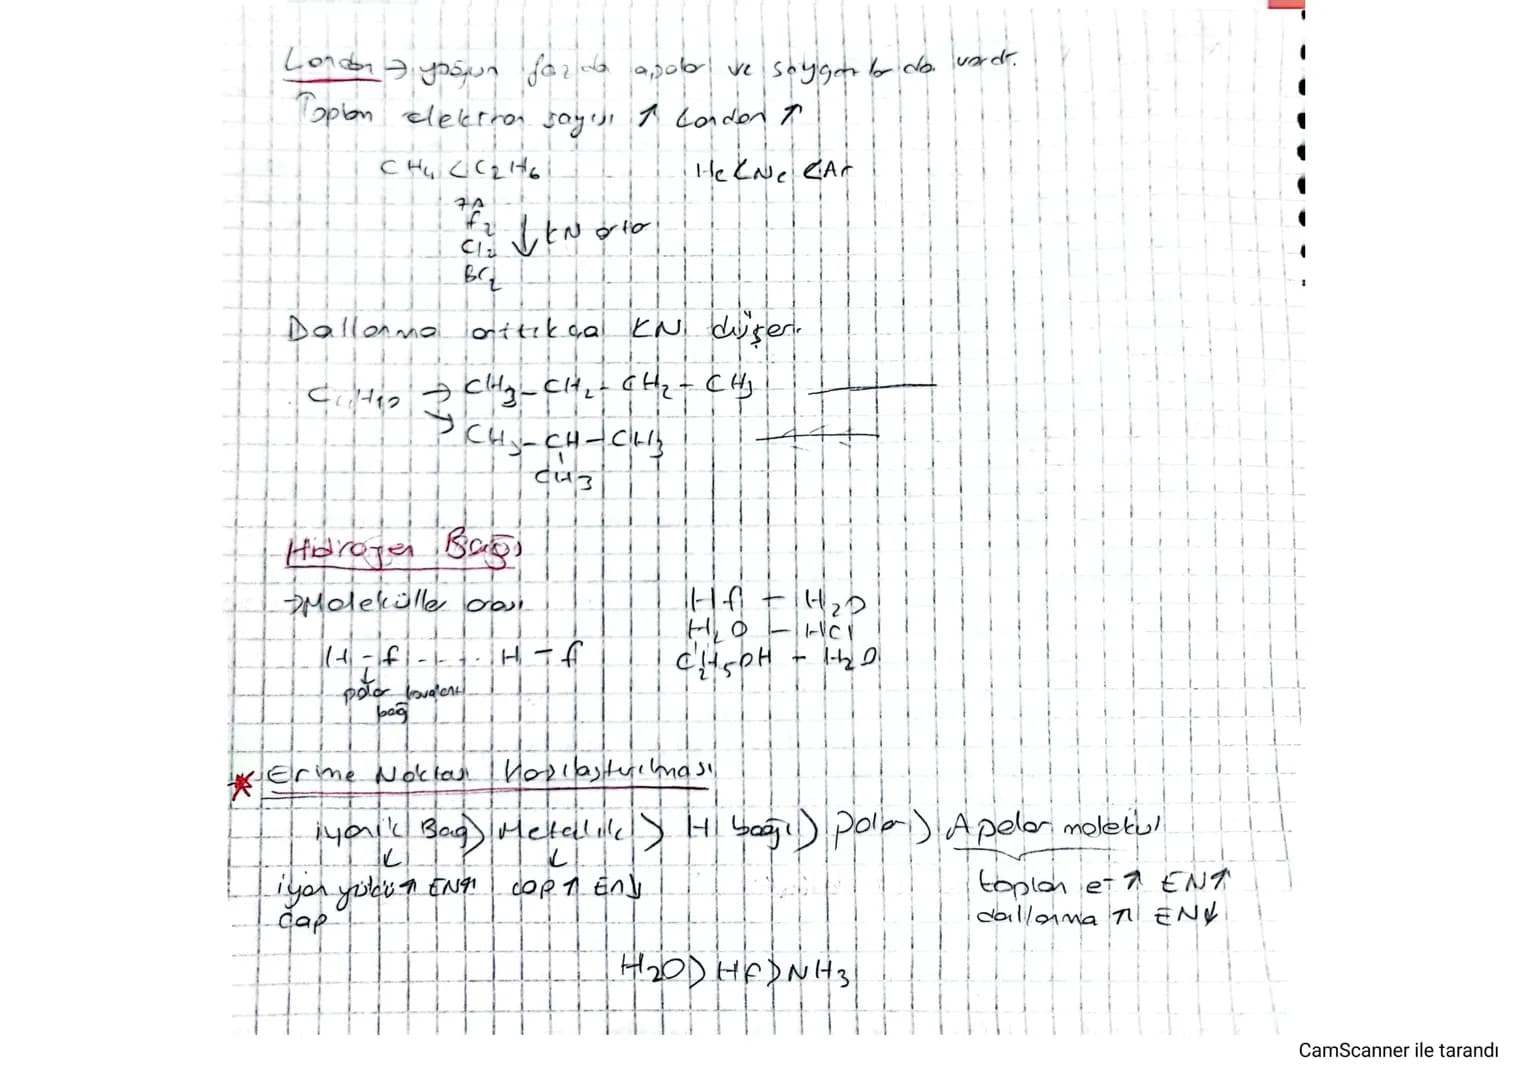 London → yoğun fazda apolar ve soygazlarda vardır.
Toplam elektron sayısı ↑ London ↑
CH4 < C2H6 He < Ne < Ar
7A
f2
Cl2 ↓ KN artar
Br2
Dallanma arttıkça KN düşer.
C4H10 → CH3-CH2-CH2-CH3
→ CH3-CH-CH3
CH3
Hidrojen Bağı
→ Moleküller arası
Hf - H2O
H2O - HCl
H-f ---- H-f C2H5OH - H2O
polar kovalent
bağ
* Erime Noktası Karşılaştırılması
iyonik Bağ > Metallik > H bağı > polar > Apolar molekül
iyon yükü ↑ EN↑ çap ↑ EN↓ toplam e- ↑ EN↑
çap dallanma ↑ EN↓
H2O > Hf > NH3
CamScanner ile tarandı